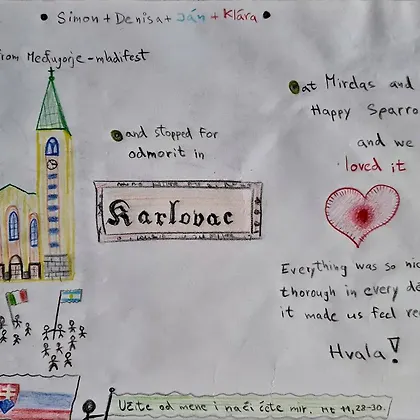 Simon + Denisa + Ján + Klára
from Međugorje - mladifest
and stopped for
odmorit in
Karlovac
at Mirelas and
Happy Sparro
and we
loved it
Everything was so nic
thorough in every de
it made us feel re
Hvala!
Učite od mene i naći ćete mir. Mt 11,28-30.